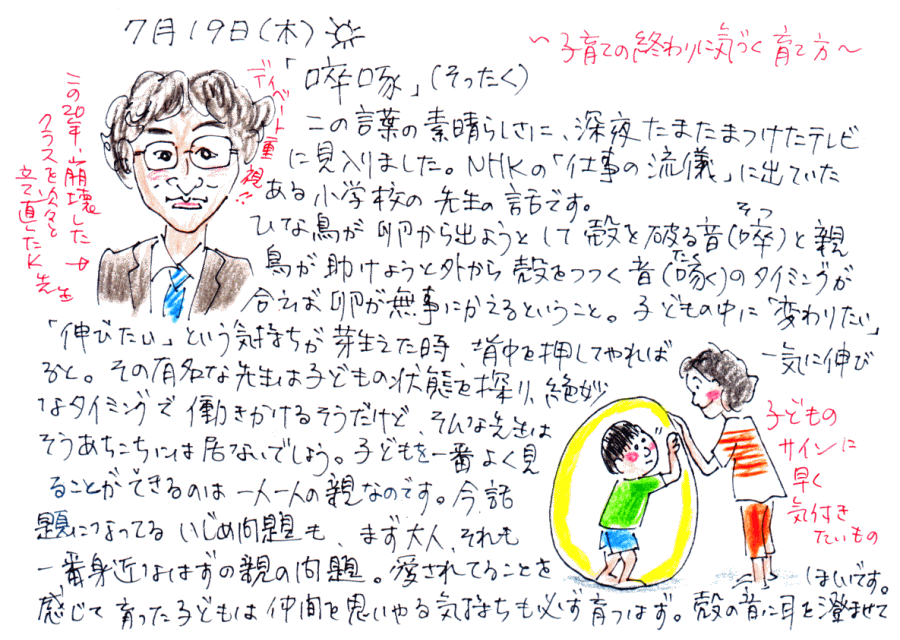 7月19日(木)
～子育ての終わりに気づく育て方～
「啐啄」(そったく)
この言葉の素晴らしさに、深夜たまたまつけたテレビ
に見入りました。NHKの「仕事の流儀」に出ていた
ある小学校の先生の話です。
ひな鳥が卵から出ようとして殻を破る音(啐)と親
そつ
鳥が助けようと外から殻をつつく音(啄)のタイミングが
たく
合えば卵が無事にかえるということ。子どもの中に「変わりたい」
「伸びたい」という気持ちが芽生えた時、背中を押してやれば一気に伸び
ると。その有名な先生は子どもの状態を探り、絶妙
なタイミングで働きかけるそうだけど、そんな先生は
そうあちこちには居ないでしょう。子どもを一番よく見
ることができるのは一人一人の親なのです。今話
題になってる いじめ問題も、まず大人、それも
一番身近なはずの親の問題。愛されてることを
感じて育った子どもは仲間を思いやる気持ちも必ず育つはず。殻の音に耳を澄ませて
ほしいです。
ディベート重視!!
この20年、崩壊した
クラスを次々と
立て直したK先生
子どもの
サインに
早く
気付き
たいもの